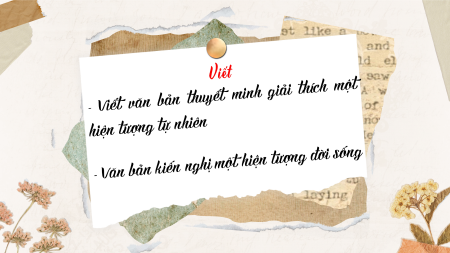 just like a
and
old
saw
A w
of
laying
Viết
- Viết văn bản thuyết minh giải thích một
hiện tượng tự nhiên
- Văn bản kiến nghị một hiện tượng đời sống